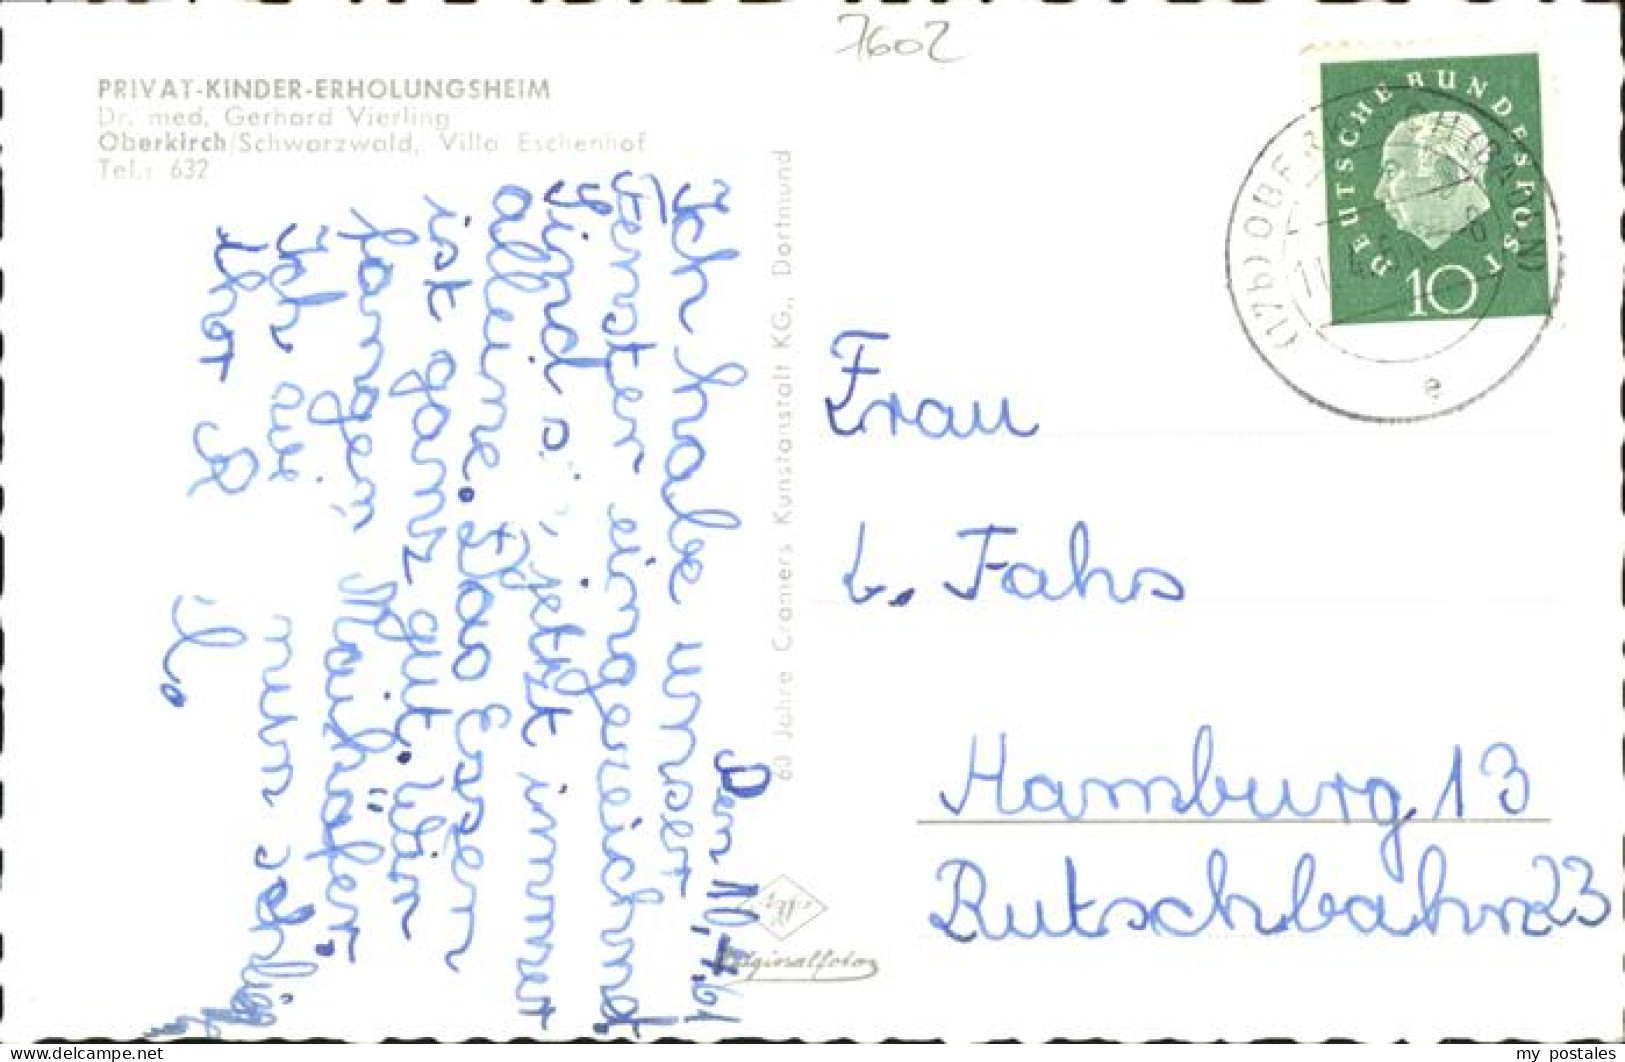 7602
PRIVAT-KINDER-ERHOLUNGSHEIM
Dr. med. Gerhard Vierling
Oberkirch/Schwarzwald, Villa Eschenhof
Tel.: 632
DEUTSCHE BUNDESPOST
10
(17b) OBERKIRCH (BADEN)
e
Den 10, 7. 61
Ich habe unser
Fenster eingereichnet
Wir sind jetzt immer
alleine. Das Essen
ist ganz gut. Wir
fangen Maikäfer.
Ich
nun schließ
60 Jahre Cramers Kunstanstalt KG., Dortmund
Agfa
Originalfoto
Frau
L. Fahs
Hamburg 13
Rutschbahn 23
my postales